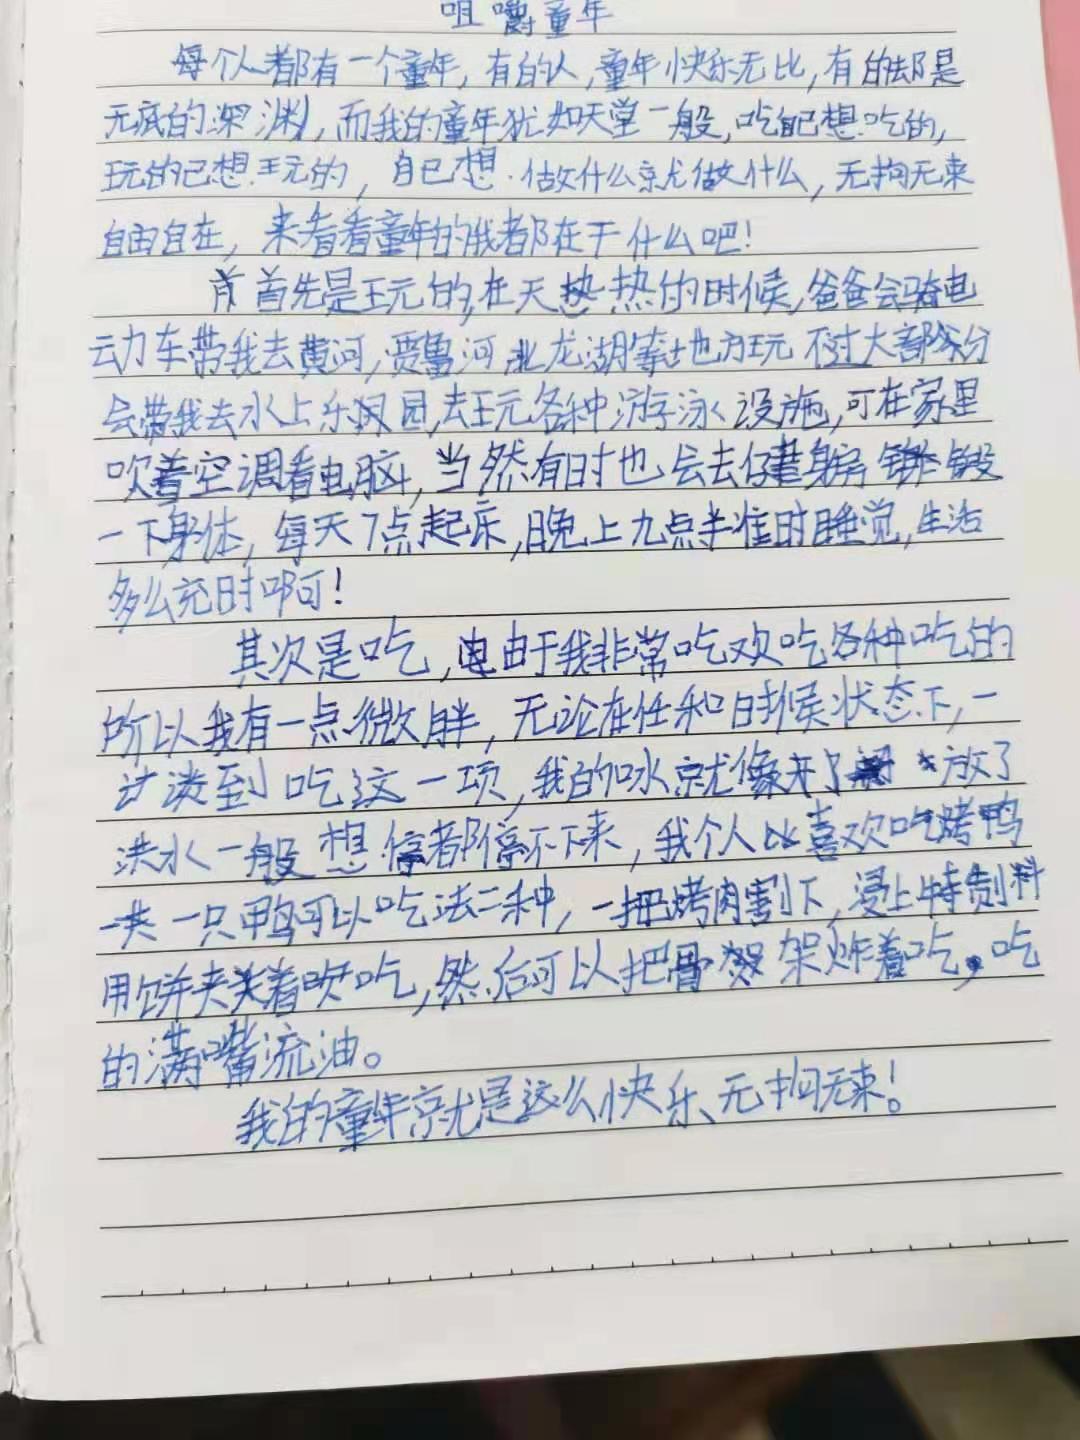 咀嚼童年
每个人都有一个童年,有的人,童年快乐无比,有的却是
无底的深渊,而我的童年犹如天堂一般,吃自己想吃的,
玩的己想玩的,自己想.做什么就做什么,无拘无束
自由自在,来看看童年的我都在干什么吧!
首先是玩的,在天热的时候,爸爸会骑电
动力车带我去黄河,贾鲁河,北龙湖等地方玩 不过大部分
会带我去水上乐园,去玩各种游泳设施,可在家里
吹着空调看电脑,当然有时也会去健身房 锻
一下身体,每天7点起床,晚上九点半准时睡觉,生活
多么充时啊!
其次是吃,由于我非常吃欢吃各种吃的
所以我有一点微胖,无论在任和时候状态下,一
谈到吃这一项,我的口水就像开了 放了
洪水一般想停都停不下来,我个人比喜欢吃烤鸭
一只鸭可以吃法二种,一把烤肉割下,浸上特制料
用饼夹着吃,然后可以把骨架炸着吃,吃
的满嘴流油。
我的童年就是这么快乐、无拘无束!